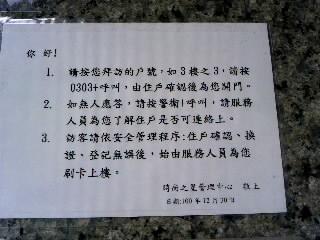 你 好!
1. 請按您拜訪的戶號，如3樓之3，請按
0303+呼叫，由住戶確認後為您開門。
2. 如無人應答，請按警衛1呼叫，請服務
人員為您了解住戶是否可連絡上。
3. 訪客請依安全管理程序:住戶確認、換
證、登記無誤後，始由服務人員為您
刷卡上樓。
時尚之星管理中心 敬上
日期:100年12月30日